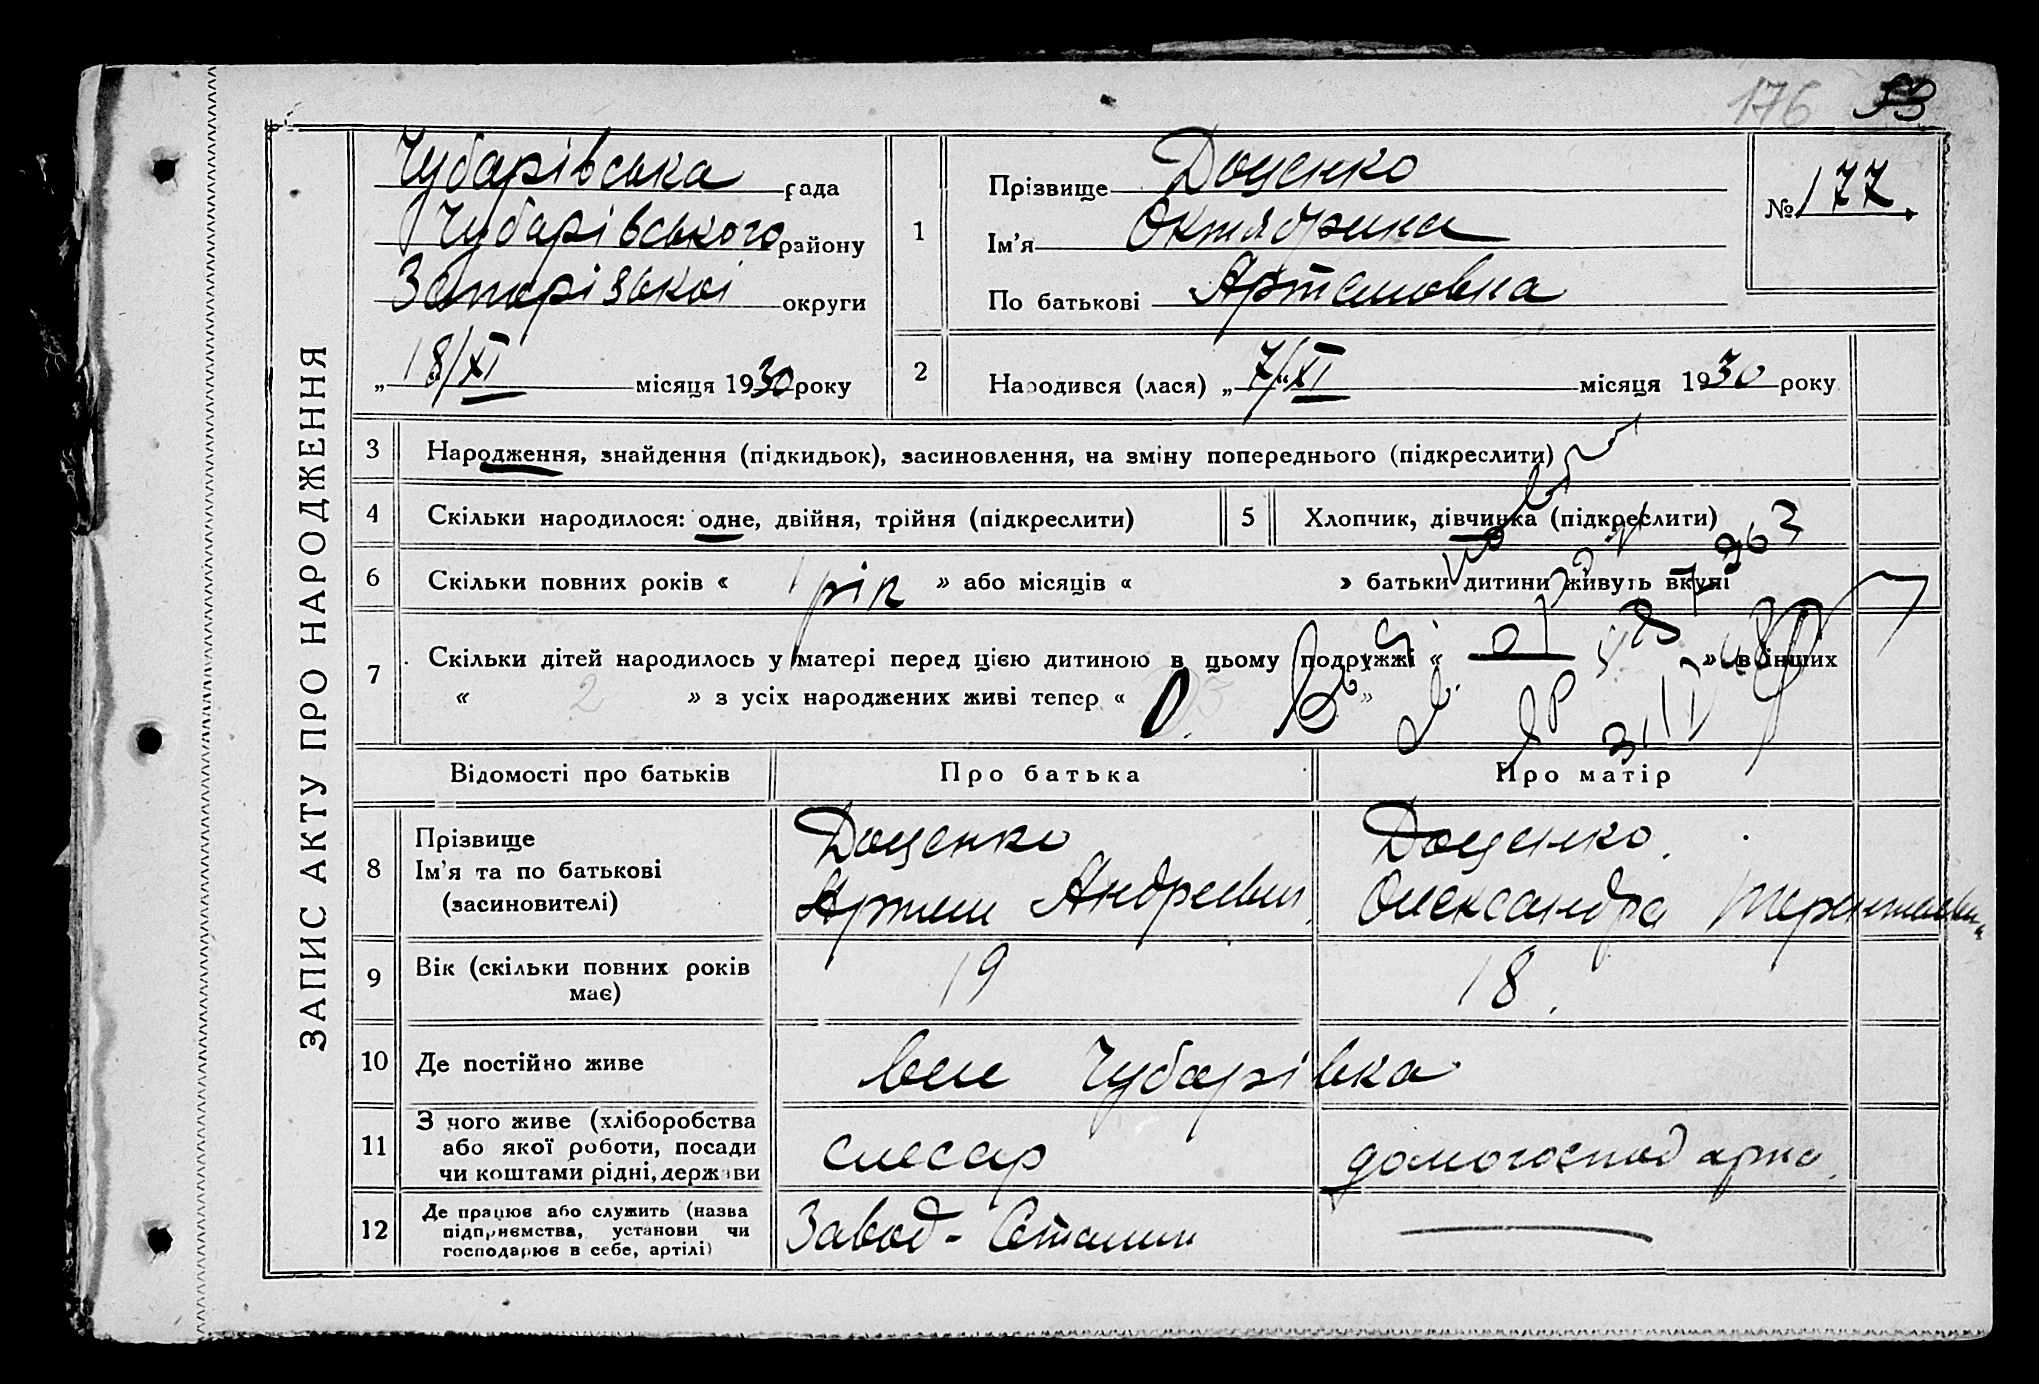 176 93
ЗАПИС АКТУ ПРО НАРОДЖЕННЯ
Чубарівська рада
Чубарівського району
Запорізької округи
„ 18/XI місяця 1930 року
1
Прізвище Доценко
Ім'я Октябрина
По батькові Артемовна
№ 177
2
Народився (лася) „ 7/XI місяця 1930 року
3 Народження, знайдення (підкидьок), засиновлення, на зміну попереднього (підкреслити)
4 Скільки народилося: одне, двійня, трійня (підкреслити)
5 Хлопчик, дівчинка (підкреслити)
6 Скільки повних років « 1 рік » або місяців « » батьки дитини живуть вкупі
7 Скільки дітей народилось у матері перед цією дитиною в цьому подружжі « » в інших
« 2 » з усіх народжених живі тепер « 0 »
Відомості про батьків Про батька Про матір
8 Прізвище
Ім'я та по батькові
(засиновителі)
Доценко
Артем Андреевич
Доценко
Олександра Терентиевна
9 Вік (скільки повних років
має)
19 18
10 Де постійно живе
в селі Чубарівка
11 З чого живе (хліборобства
або якої роботи, посади
чи коштами рідні, держави
слесар домогосподарка
12 Де працює або служить (назва
підприємства, установи чи
господарює в себе, артілі)
Завод - Сталин